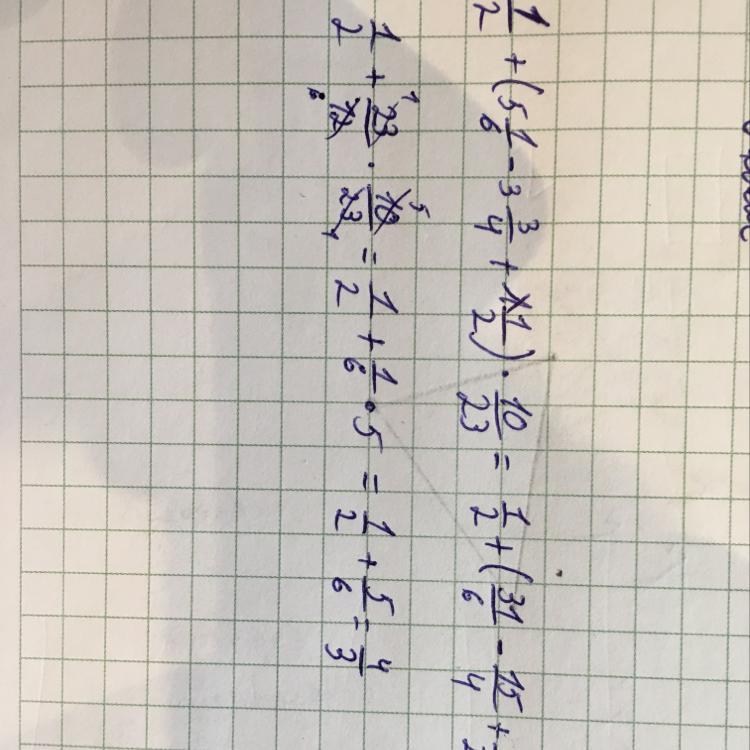 1/2 + (5 1/6 - 3 3/4 + 1/2) · 10/23 = 1/2 + (31/6 - 15/4 +
1/2 + 23/12 · 10/23 = 1/2 + 1/6 · 5 = 1/2 + 5/6 = 4/3